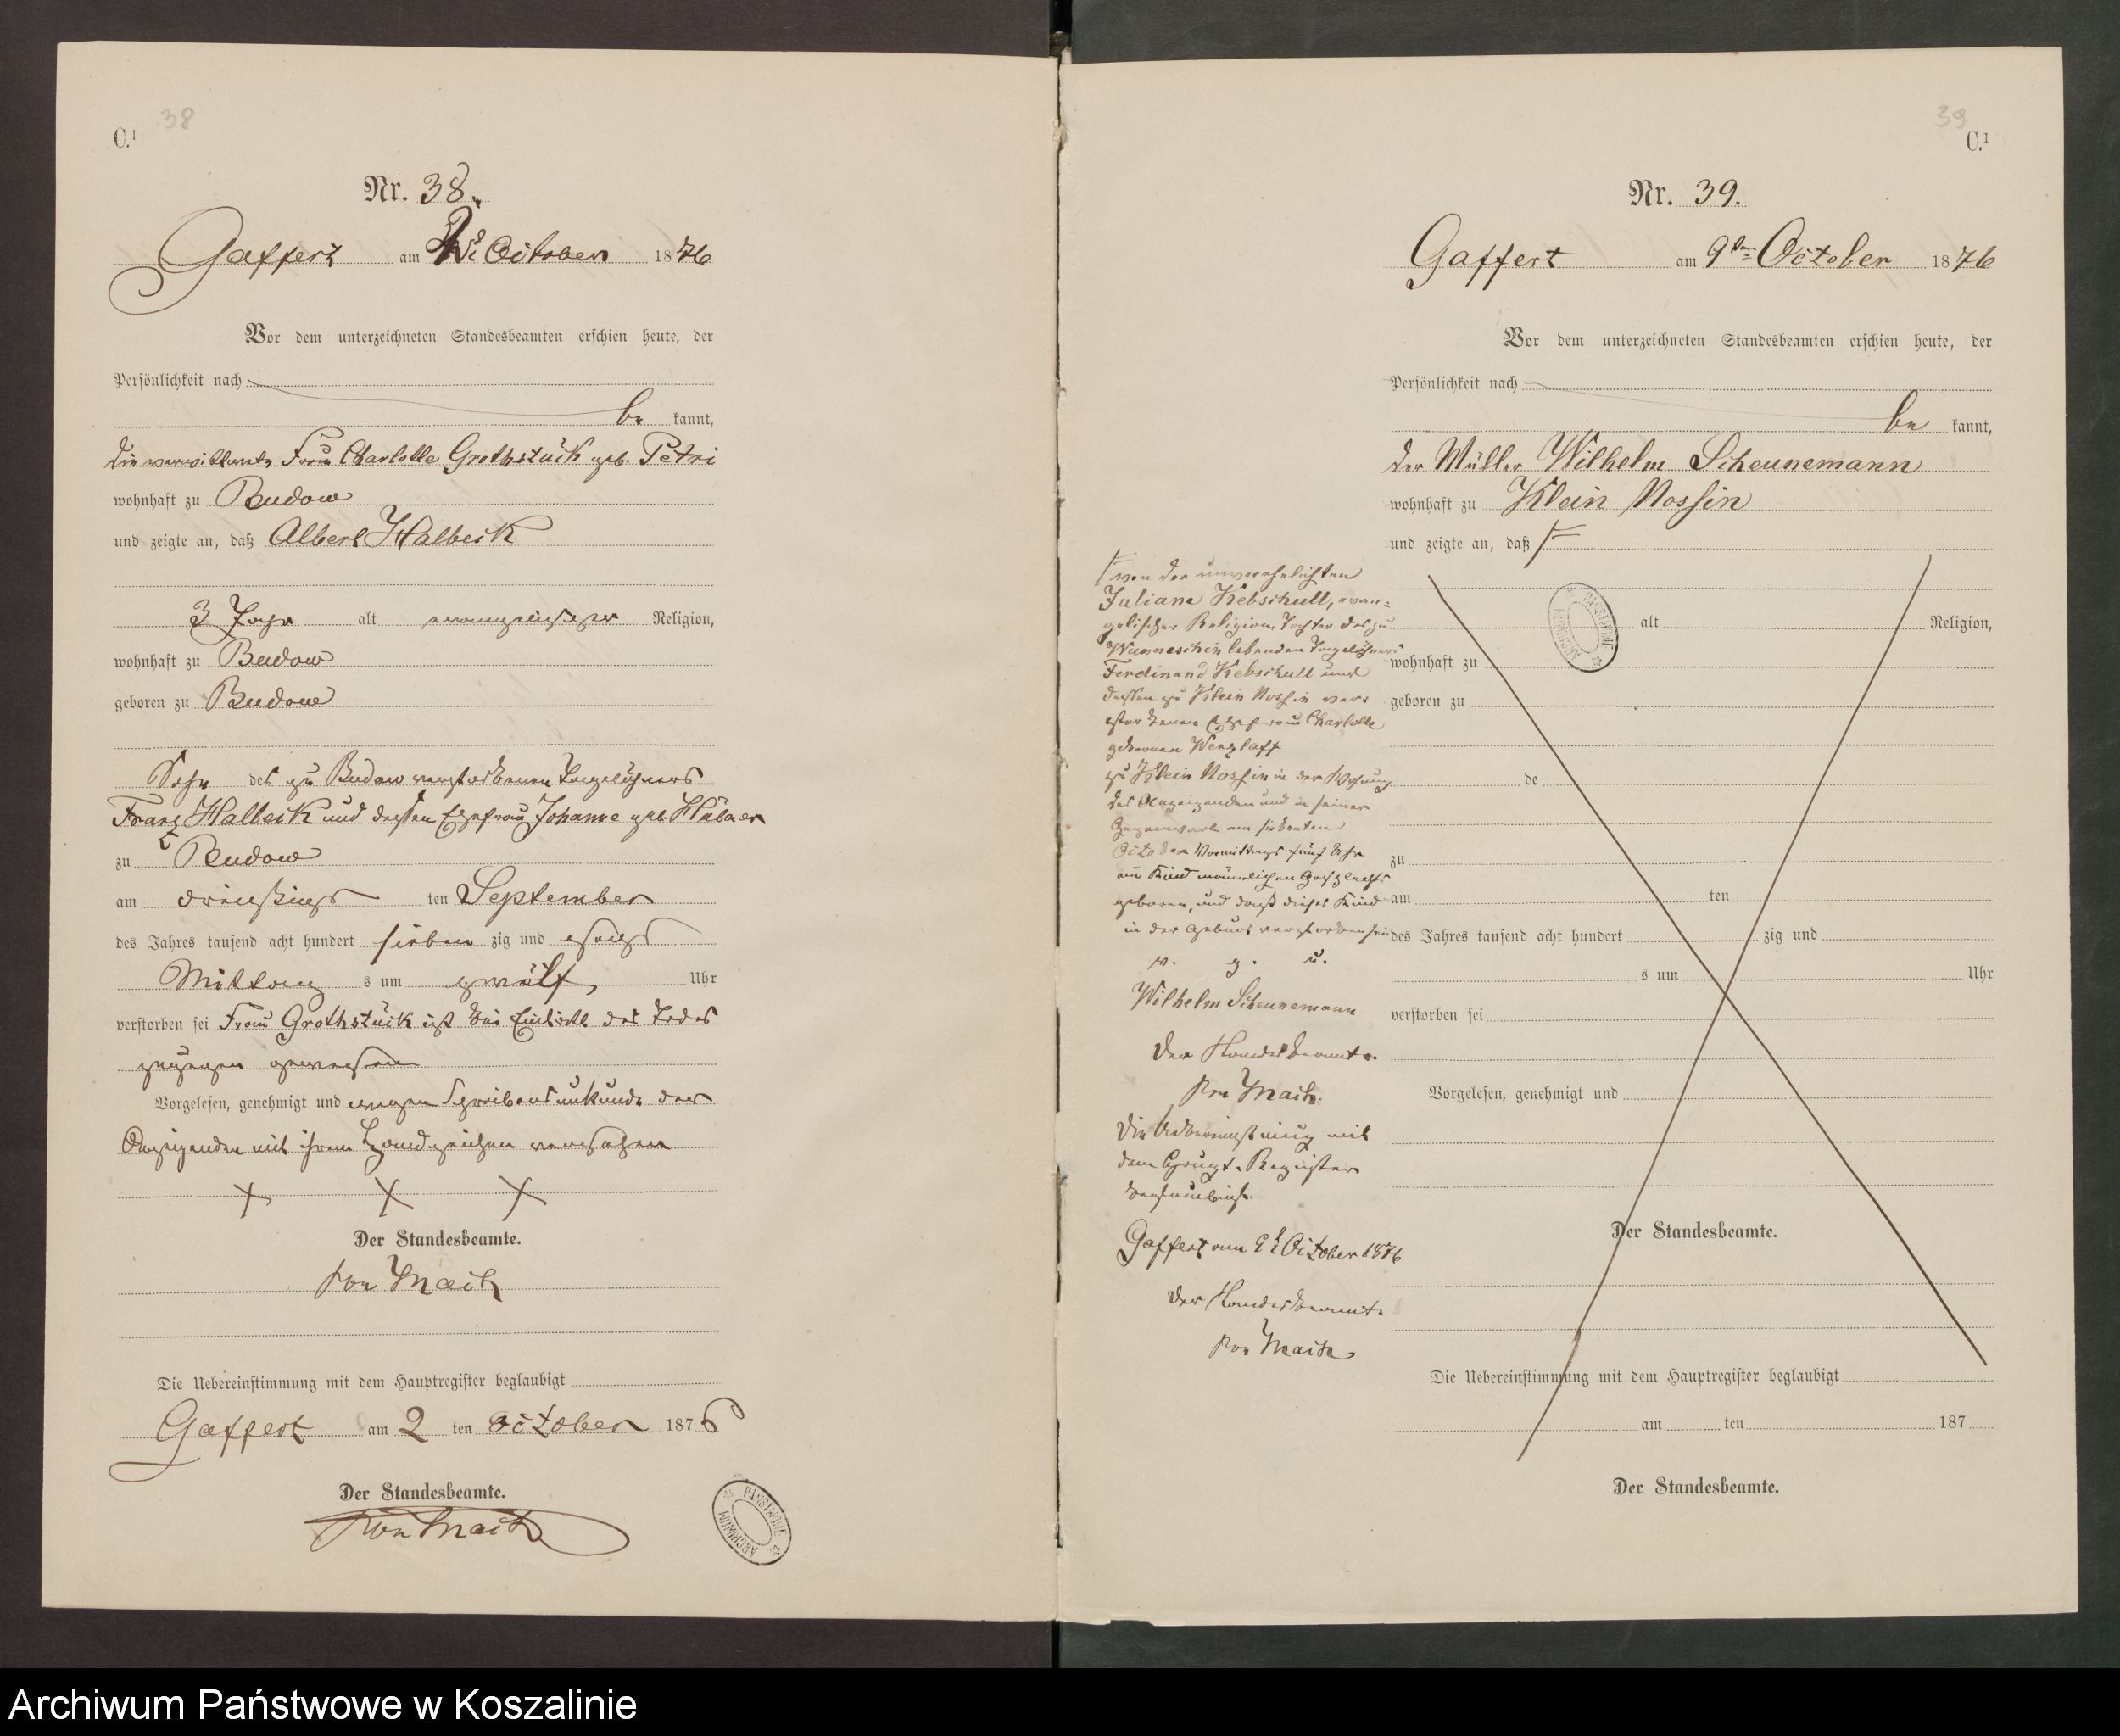 38
C.1
Nr. 38.
Gaffert am 2t October 1876
Vor dem unterzeichneten Standesbeamten erschien heute, der
Persönlichkeit nach
be kannt,
die verwittwete Frau Charlotte Grothstück geb. Petri
wohnhaft zu Budow
und zeigte an, daß Albert Halbeck
3 Jahr alt evangelischer Religion,
wohnhaft zu Budow
geboren zu Budow
Sohn des zu Budow verstorbenen Tagelöhners
Franz Halbeck und dessen Ehefrau Johanne geb. Hübner
zu Budow
am dreißigs ten September
des Jahres tausend acht hundert sieben zig und sechs
Mittag s um zwölf Uhr
verstorben sei Frau Grothstück ist bei Eintritt des Todes
zugegen gewesen
Vorgelesen, genehmigt und wegen Schreibensunkunde der
Anzeigenden mit ihrem Handzeichen versehen
+ + +
Der Standesbeamte.
von Mach
Die Uebereinstimmung mit dem Hauptregister beglaubigt
Gaffert am 2 ten October 1876
Der Standesbeamte.
von Mach
ARCHIWUM PAŃSTWOWE
39
C.1
Nr. 39.
Gaffert am 9ten October 1876
Vor dem unterzeichneten Standesbeamten erschien heute, der
Persönlichkeit nach
be kannt,
der Müller Wilhelm Scheunemann
wohnhaft zu Klein Nossin
und zeigte an, daß
von der unverehelichten
Juliane Kebschull, evan-
gelischer Religion, Tochter des zu
Wunneschin lebenden Tagelöhners
Ferdinand Kebschull und
dessen zu Klein Nossin ver-
storbenen Ehefrau Charlotte
geborenen Wenzlaff
zu Klein Nossin in der Wohnung
des Anzeigenden und in seiner
Gegenwart am siebenten
October Vormittags fünf Uhr
ein Kind männlichen Geschlechts
geboren, und daß dieses Kind
in der Geburt verstorben sei
v. g. u.
Wilhelm Scheunemann
Der Standesbeamte.
von Mach.
Die Uebereinstimung mit
dem Haupt-Register
beglaubigt.
Gaffert am 9t October 1876
Der Standesbeamte
von Mach
alt Religion,
wohnhaft zu
geboren zu
de
zu
am ten
des Jahres tausend acht hundert zig und
s um Uhr
verstorben sei
Vorgelesen, genehmigt und
Der Standesbeamte.
Die Uebereinstimmung mit dem Hauptregister beglaubigt
am ten 187
Der Standesbeamte.
ARCHIWUM PAŃSTWOWE
Archiwum Państwowe w Koszalinie